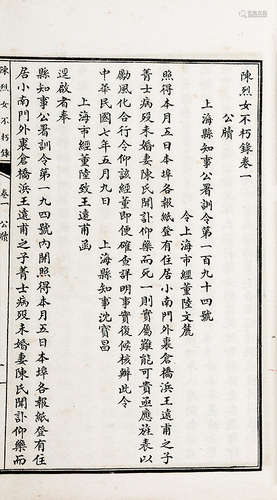 陳烈女不朽錄卷一
公牘
上海縣知事公署訓令第一百九十四號
令上海市經董陸文麓
照得本月五日本埠各報紙登有住居小南門外裏倉橋浜王遠甫之子
菁士病歿未婚妻陳氏聞訃仰藥而死一則實屬難能可貴亟應旌表以
勵風化合行令仰該經董即便確查詳明事實復候核辦此令
中華民國七年五月九日　上海縣知事沈寶昌
上海市經董陸致王遠甫函
逕啟者奉
縣知事公署訓令第一九四號內開照得本月五日本埠各報紙登有住
居小南門外裏倉橋浜王遠甫之子菁士病歿未婚妻陳氏聞訃仰藥而
陳烈女不朽錄 卷一 公牘
一